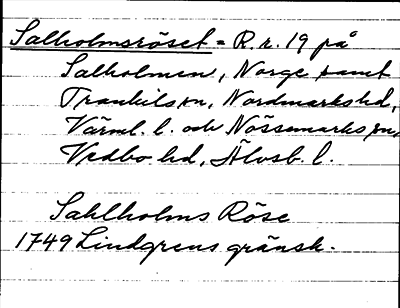 Salholmsröset = R.r. 19 på
Salholmen, Norge samt
Trankils sn, Nordmarks hd,
Värml. l. och Nössemarks sn,
Vedbo hd, Älvsb. l.
Sahlholms Röse
1749 Lindgrens gränsk.